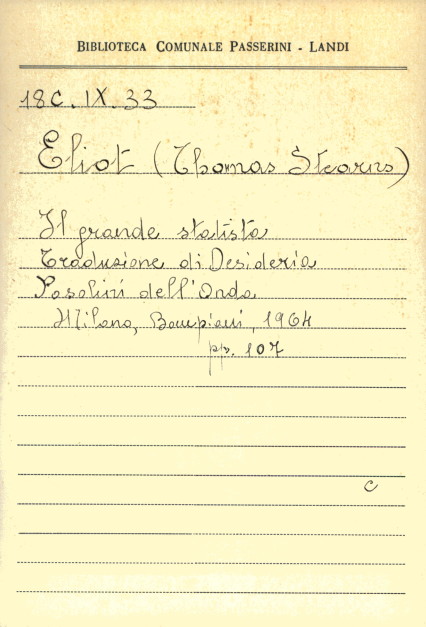 BIBLIOTECA COMUNALE PASSERINI - LANDI
18C. IX. 33
Eliot (Thomas Stearns)
Il grande statista
Traduzione di Desideria
Pasolini dell'Onda
Milano, Bompiani, 1964
pp. 107
c